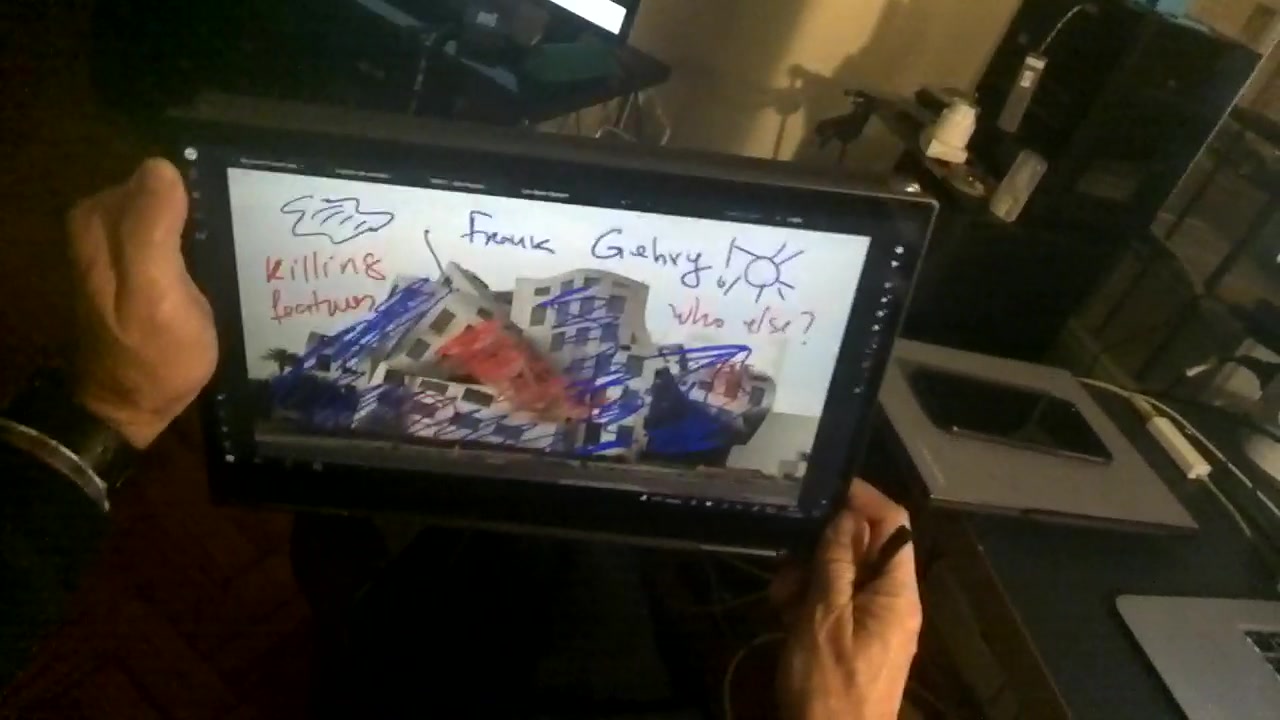 Frank Gehry!
killing
features
who else?